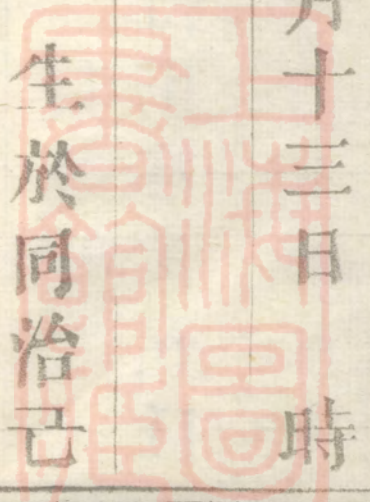 月十三日　時
生於同治己
上海圖書館藏